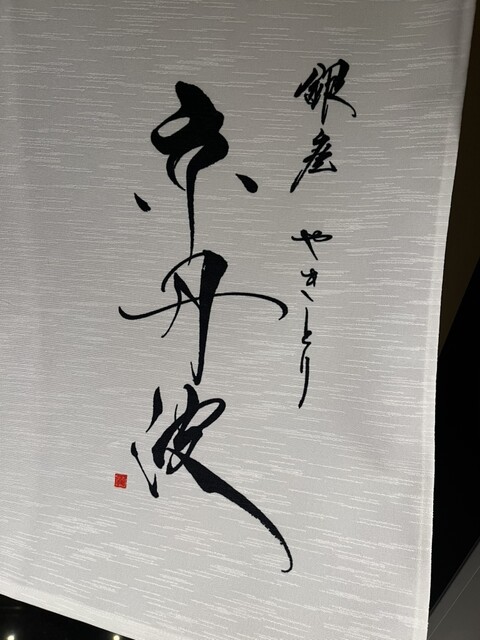 銀座 やきとり
京丹波